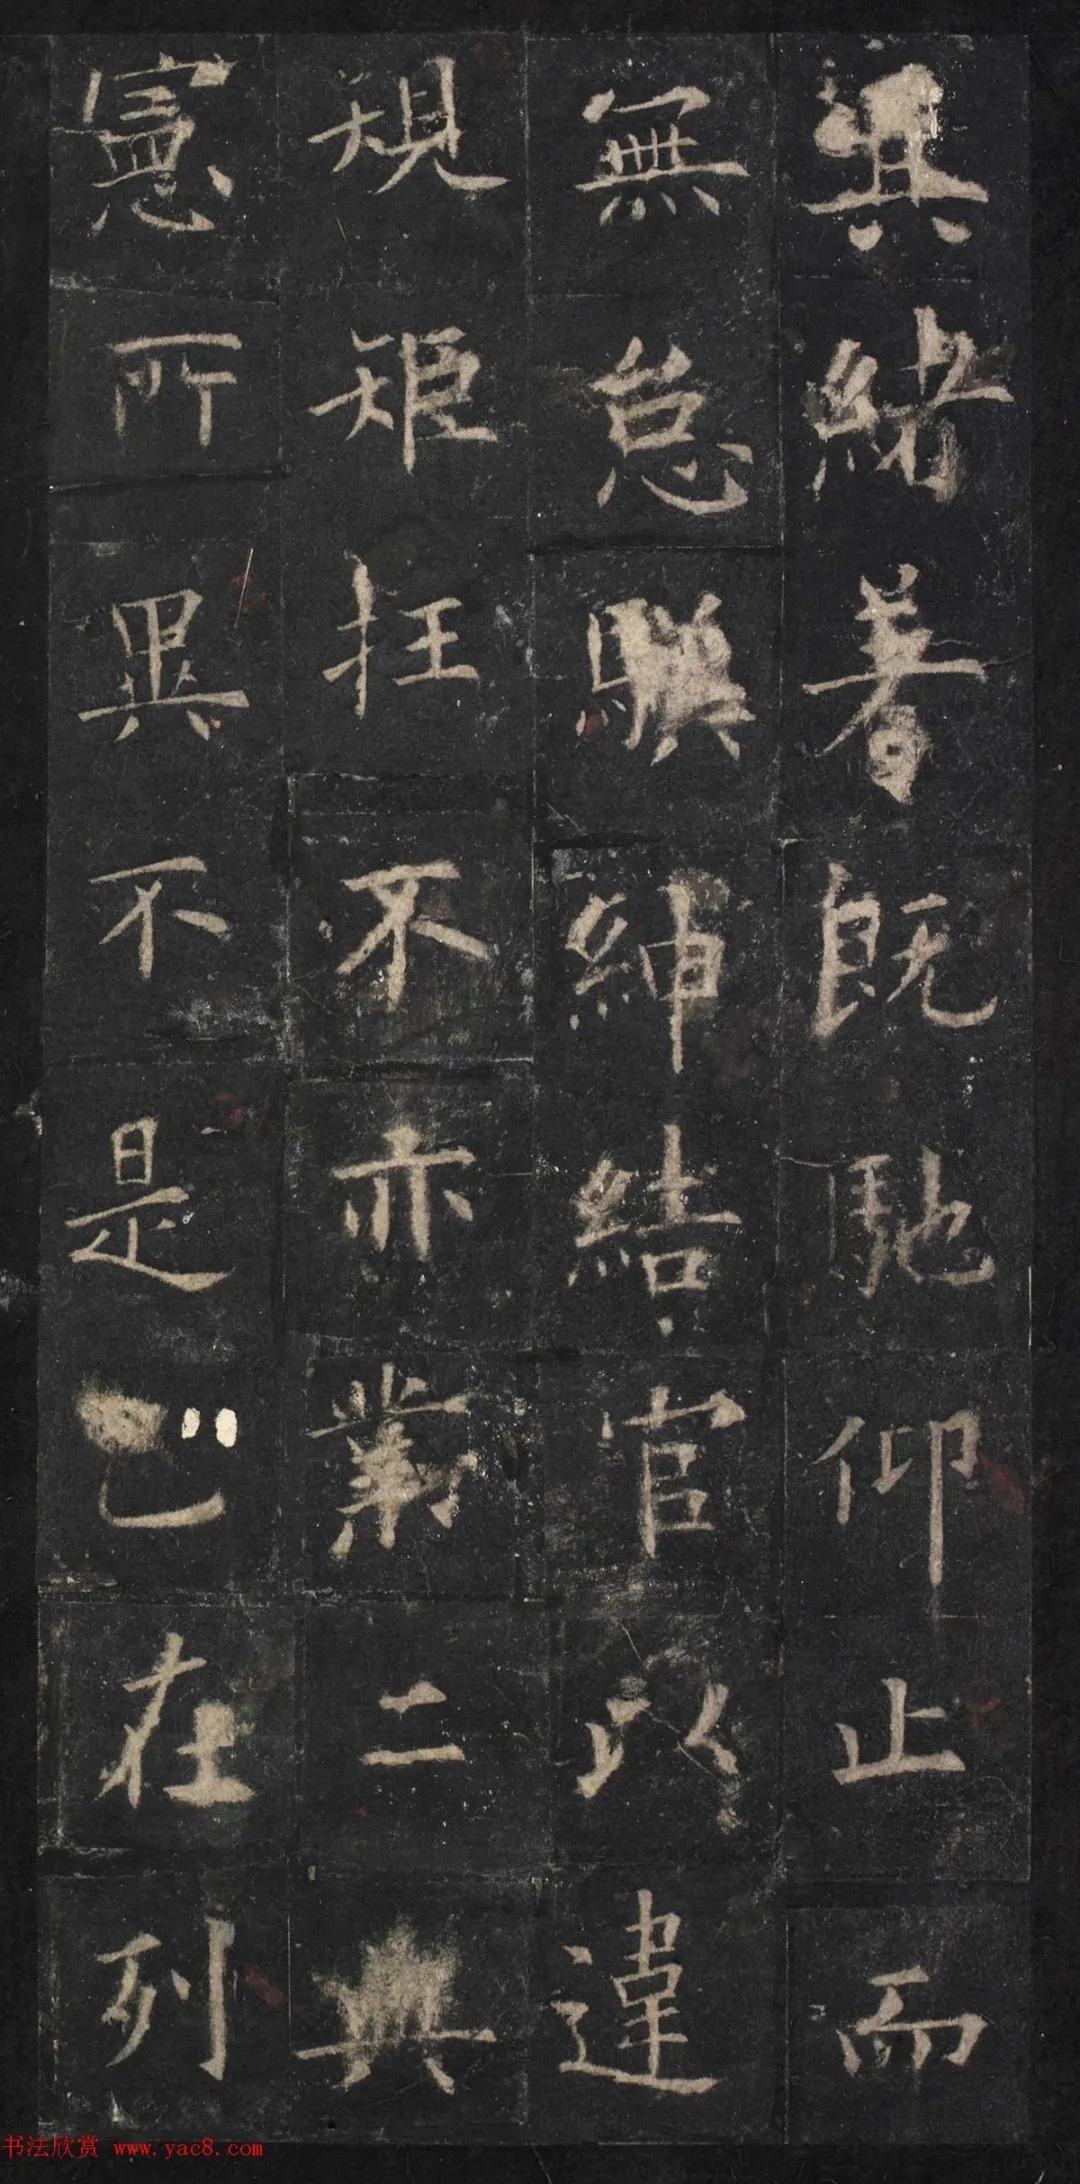 其緒著既馳仰止而
無怠紳結官以違
規矩抂不亦二典
憲所異不是在列
书法欣赏 www.yac8.com